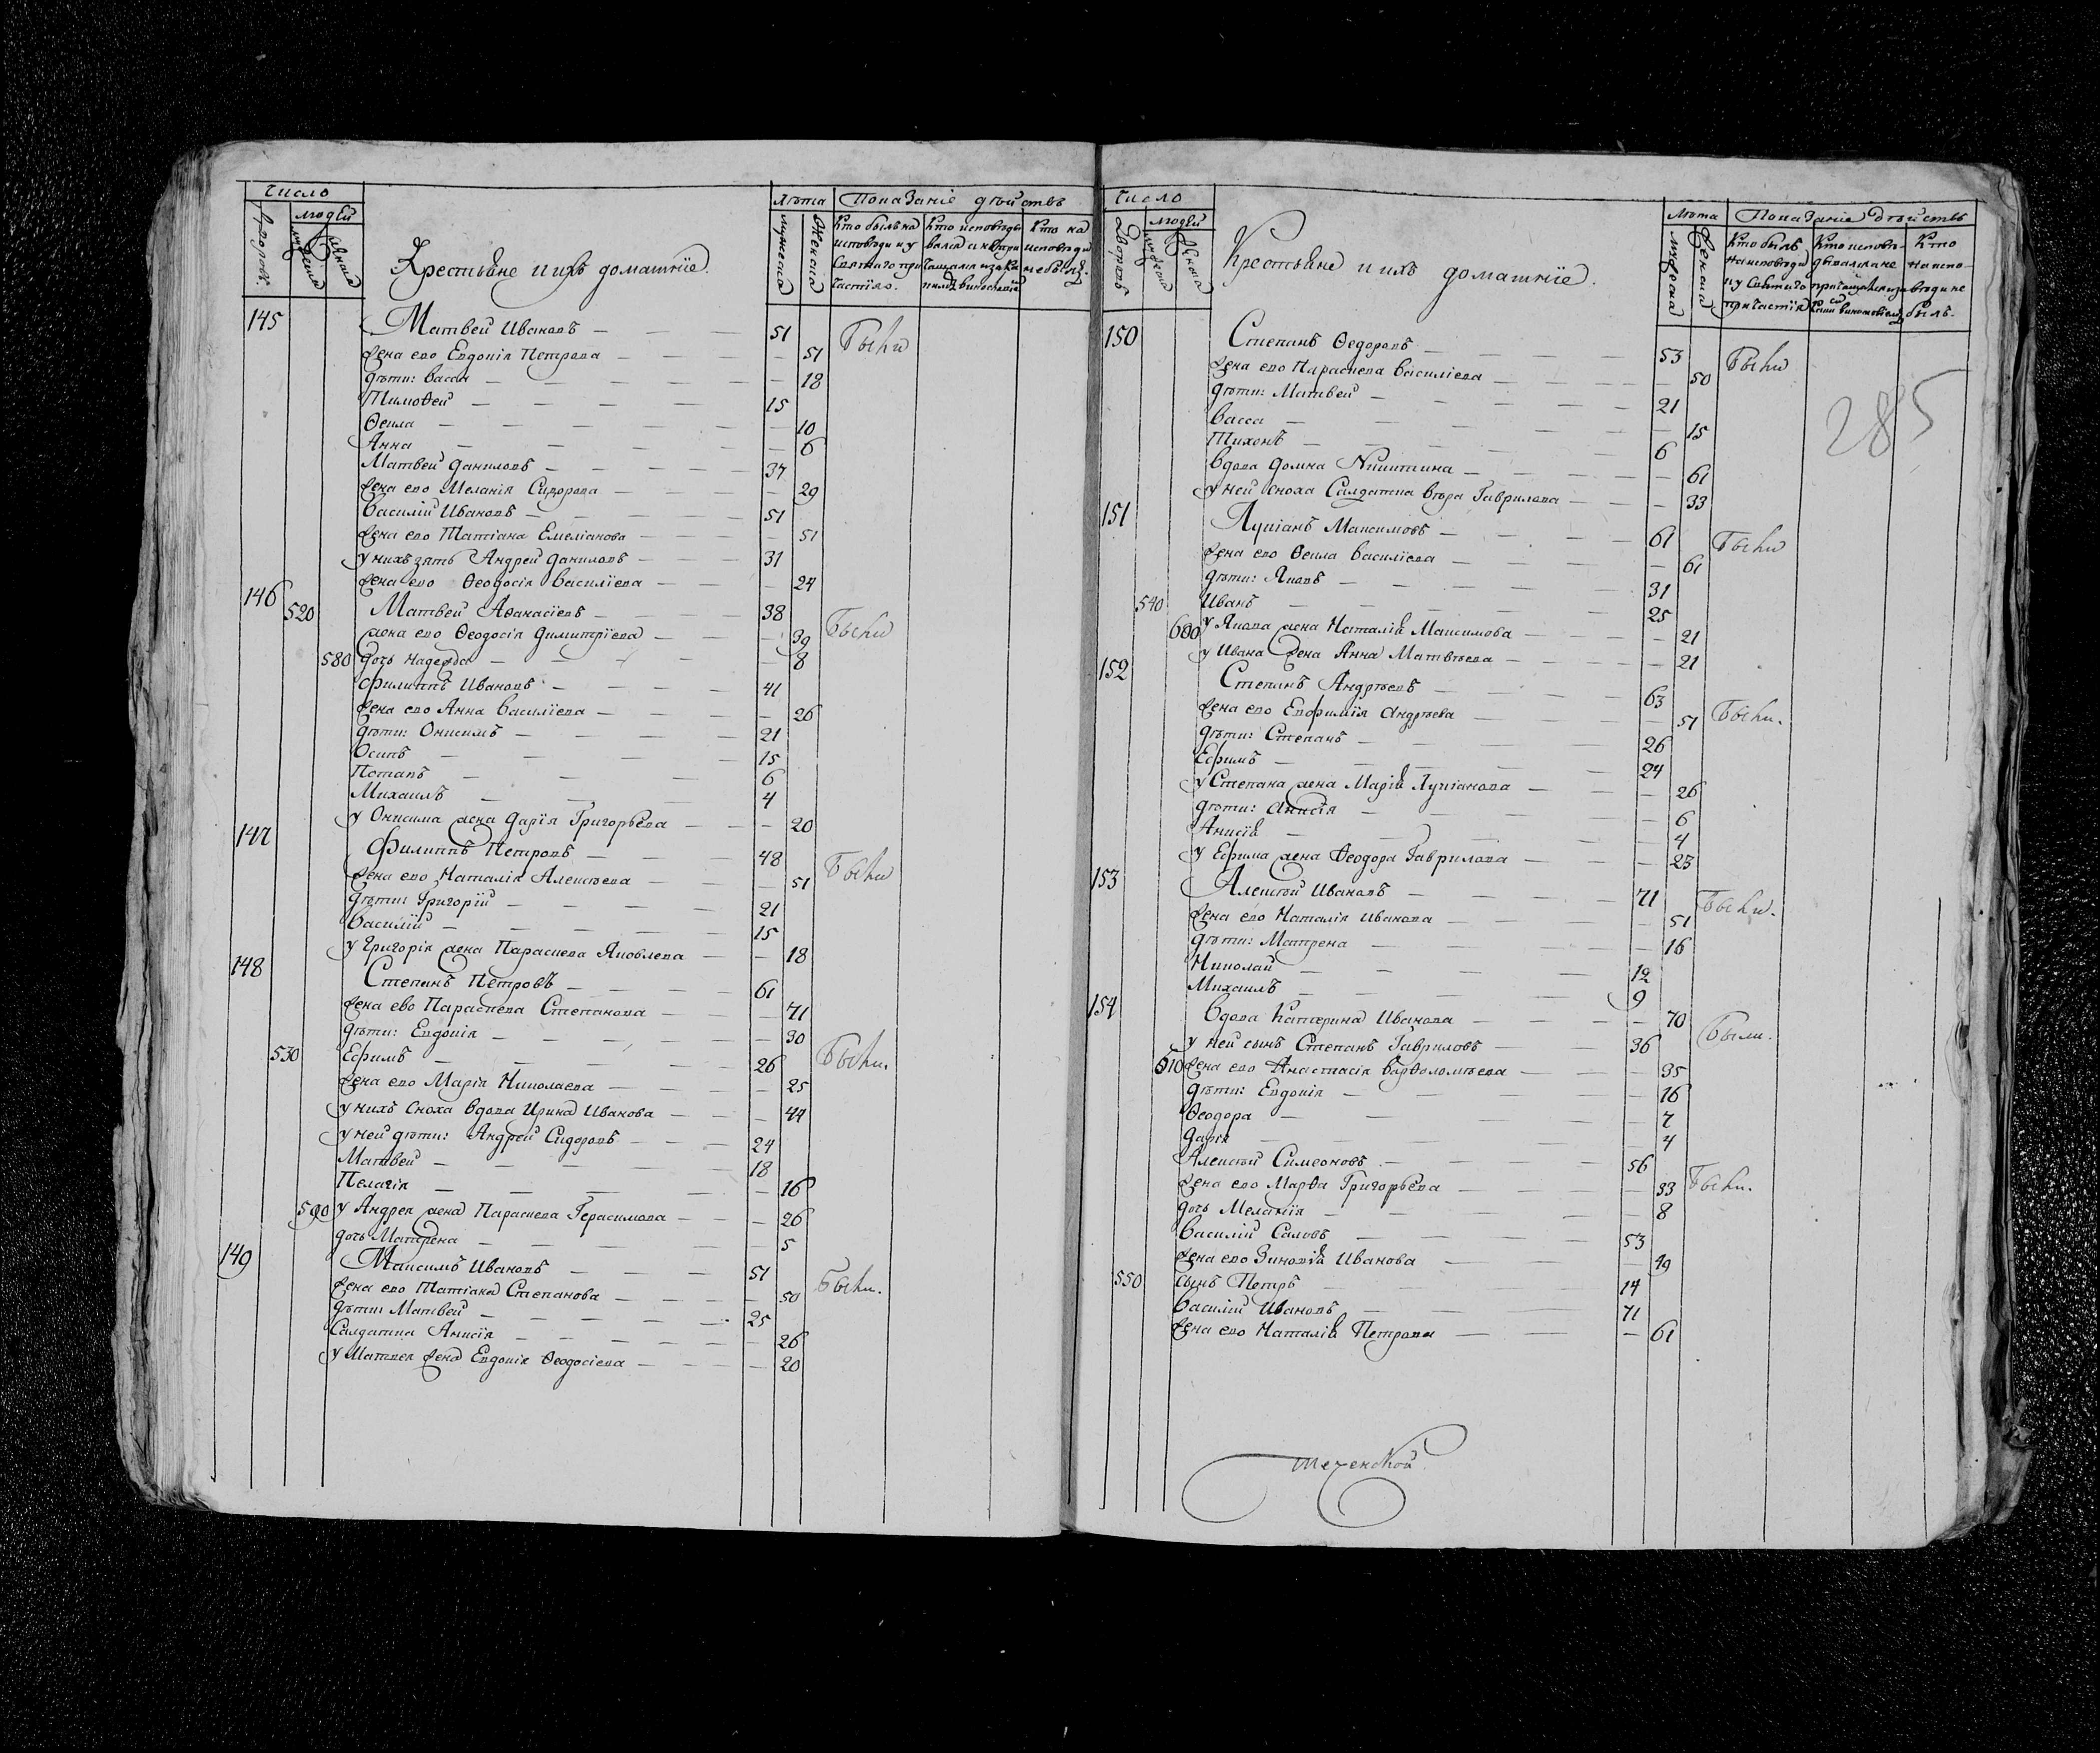 Число
Дворовъ.
людей
мужеска
женска
Крестьяне и ихъ домашніе.
лѣта
мужеска
женска
Показаніе дѣйствъ
Кто былъ на исповѣди и у Святаго причастія.
Кто исповѣдывался а не причащался и за какимъ винословіемъ
Кто на исповѣди не былъ.
145 Матвей Ивановъ — — — 51 Были
жена ево Евдокія Петрова — — — — 51
дѣти: Васса — — — — — 18
Тимоѳей — — — — 15
Ѳекла — — — — — 10
Анна — — — — 6
Матвей Даниловъ — — — — 37
жена ево Меланія Сидорова — — — — 29
Василій Ивановъ — — — — 51
жена ево Татіана Емеліанова — — — — 51
у нихъ зять Андрей Даниловъ — — — 31
жена ево Ѳеодосія Василіева — — — 24
146 520 Матвей Аѳанасіевъ — — — 38 Были
жена ево Ѳеодосія Димитріева — — — 39
580 дочь Надежда — — — — — 8
Филиппъ Ивановъ — — — — 41
жена ево Анна Василіева — — — — 26
дѣти: Онисимъ — — — — 21
Осипъ — — — 15
Потапъ — — — 6
Михаилъ — — — 4
у Онисима жена Дарія Григорьева — — — 20
147 Филиппъ Петровъ — — — 48 Были
жена ево Наталія Алексѣева — — — 51
дѣти: Григорій — — — — 21
Василій — — — — — 15
у Григорія жена Параскева Яковлева — — 18
148 Степанъ Петровъ — — — — 61
жена ево Параскева Степанова — — — 71
дѣти: Евдокія — — — — — — 30
530 Ефимъ — — — — 26 Были.
жена ево Марія Николаева — — — 25
у нихъ сноха вдова Ирина Иванова — — — 44
у ней дѣти: Андрей Сидоровъ — — — 24
Матвей — — — — — 18
Пелагія — — — — — 16
590 у Андрея жена Параскева Герасимова — — — 26
дочь Матрена — — — — — 5
149 Максимъ Ивановъ — — — 51 Были.
жена ево Татіана Степанова — — — — 50
дѣти Матвей — — — — — 25
Салдатка Анисія — — — — — — 26
у Матвея жена Евдокія Ѳеодосіева — — — — 20
Число
Дворовъ
людей
мужеска
женска
Крестьяне и ихъ домашніе.
лѣта
мужеска
женска
Показаніе дѣйствъ
Кто былъ на исповѣди и у Святаго причастія
Кто на исповѣди не былъ.
285
150 Степанъ Ѳедоровъ — — — — 53 Были
жена ево Параскева Василіева — — — — 50
дѣти: Матвей — — — — — 21
Васса — — — — — — 15
Тихонъ — — — — — 6
вдова Домна Никитина — — — — — 61
у ней сноха Салдатка Вѣра Гаврилова — — — 33
151 Лукіанъ Максимовъ — — — — 61 Были
жена ево Ѳекла Василіева — — — — — 61
дѣти: Яковъ — — — — — 31
540 Иванъ — — — — — 25
600 у Якова жена Наталія Максимова — — — — 21
у Ивана жена Анна Матвѣева — — — — — 21
152 Степанъ Андрѣевъ — — — — 63
жена ево Евфимія Андрѣева — — — — 51 Были.
дѣти: Степанъ — — — — — 26
Ефимъ — — — — — 24
у Степана жена Марія Лукіанова — — — 26
дѣти: Анисія — — — — — 6
Анисія — — — — — 4
у Ефима жена Ѳеодора Гаврилова — — — — 23
153 Алексѣй Ивановъ — — — — 71 Были.
жена ево Наталія Иванова — — — — — 51
дѣти: Матрена — — — — — 16
Николай — — — — — 12
Михаилъ — — — — — 9
154 вдова Катерина Иванова — — — — 70 Были.
у ней сынъ Степанъ Гавриловъ — — — 36
610 жена ево Анастасія Варѳоломѣева — — — — 35
дѣти: Евдокія — — — — — — 16
Ѳеодора — — — — — 7
Дарія — — — — — — 4
Алексѣй Симеоновъ — — — — 56
жена ево Марѳа Григорьева — — — — 33 Были.
дочь Меланія — — — — — — 8
Василій Саловъ — — — — — 53
жена ево Зиновія Иванова — — — — 49
550 сынъ Петръ — — — — — 14
Василій Ивановъ — — — — 71
жена ево Наталія Петрова — — — 61